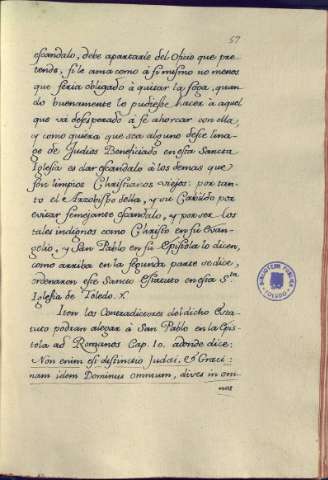 57
escandalo, debe apartarle del Oficio que pre-
tende, si le ama como à si mismo no menos
que seria obligado à quitar la soga, quan-
do buenamente lo pudiese hacer à aquel
que va desesperado à se ahorcar con ella,
y como quiera que sea alguno deste lina-
ge de Judios Beneficiado en esta Sancta
Iglesia es dar escandalo à los demas que
son limpios Christianos viejos: por tan-
to el Arzobispo della, y su Cabildo por
evitar semejante escandalo, y por ser los
tales indignos como Christo en su Evan-
gelio, y San Pablo en su Epistola lo dicen,
como arriba en la segunda parte se dice,
ordenaron este Sancto Estatuto en esta S.ta
Iglesia de Toledo.
Iten los Contradictores del dicho Esta-
tuto podran alegar à San Pablo en la Epis-
tola ad Romanos Cap. 10. adonde dice:
Non enim est distinctio Judæi, & Græci:
nam idem Dominus omnium, dives in om-
nes
BIBLIOTECA PUBLICA
TOLEDO